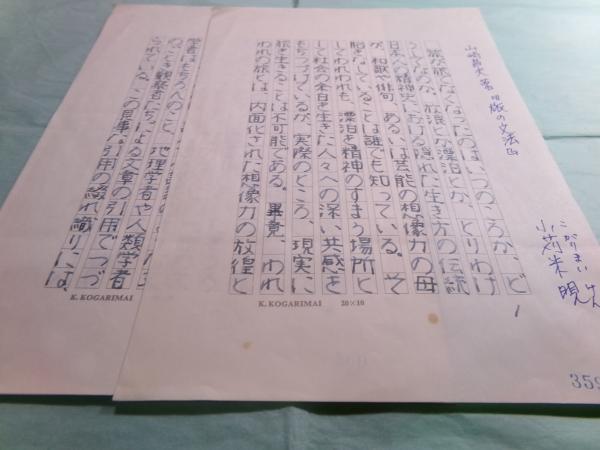 山崎昌夫著『旅の文法』
こがりまい けん
小苅米晛
旅が旅でなくなったのはいつのころか、ど
うしてなのか、放浪とか漂泊とか、とりわけ
日本人の精神史における隠れた生き方の伝統
が、和歌や俳句、あるいは芸能の想像力の母
胎をなしていることは誰でも知っている。そ
してわれわれも、漂泊を精神のすまう場所と
して社会の余白を生きた人々への深い共感を
もちつづけているが、実際のところ、現実に
旅を生きることは不可能である。畢竟、われ
われの旅とは、内面化された想像力の放徨と
1
K. KOGARIMAI 20×10
359
学者はもちろんのこと、地理学者や人類学者
のごとき観察者たちによる文章の引用でつづ
られている。この見事な引用の綴れ織りには、
K. KOGARIMAI